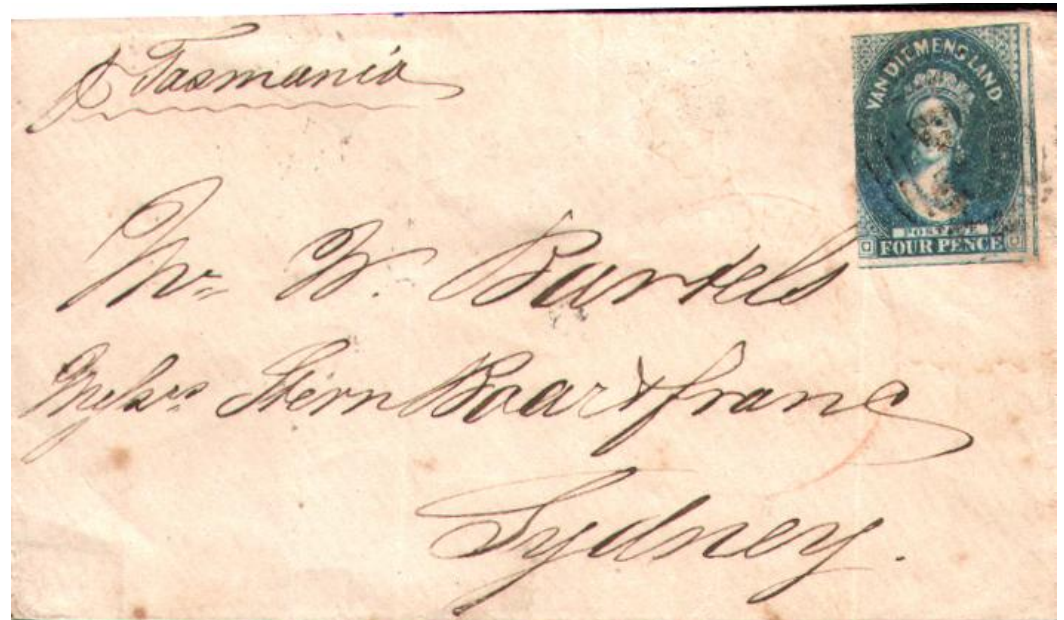 p Tasmania
VAN DIEMENS LAND
POSTAGE
FOUR PENCE
Mr. W. Bartels
Messrs Stern Boar & franc
Sydney.